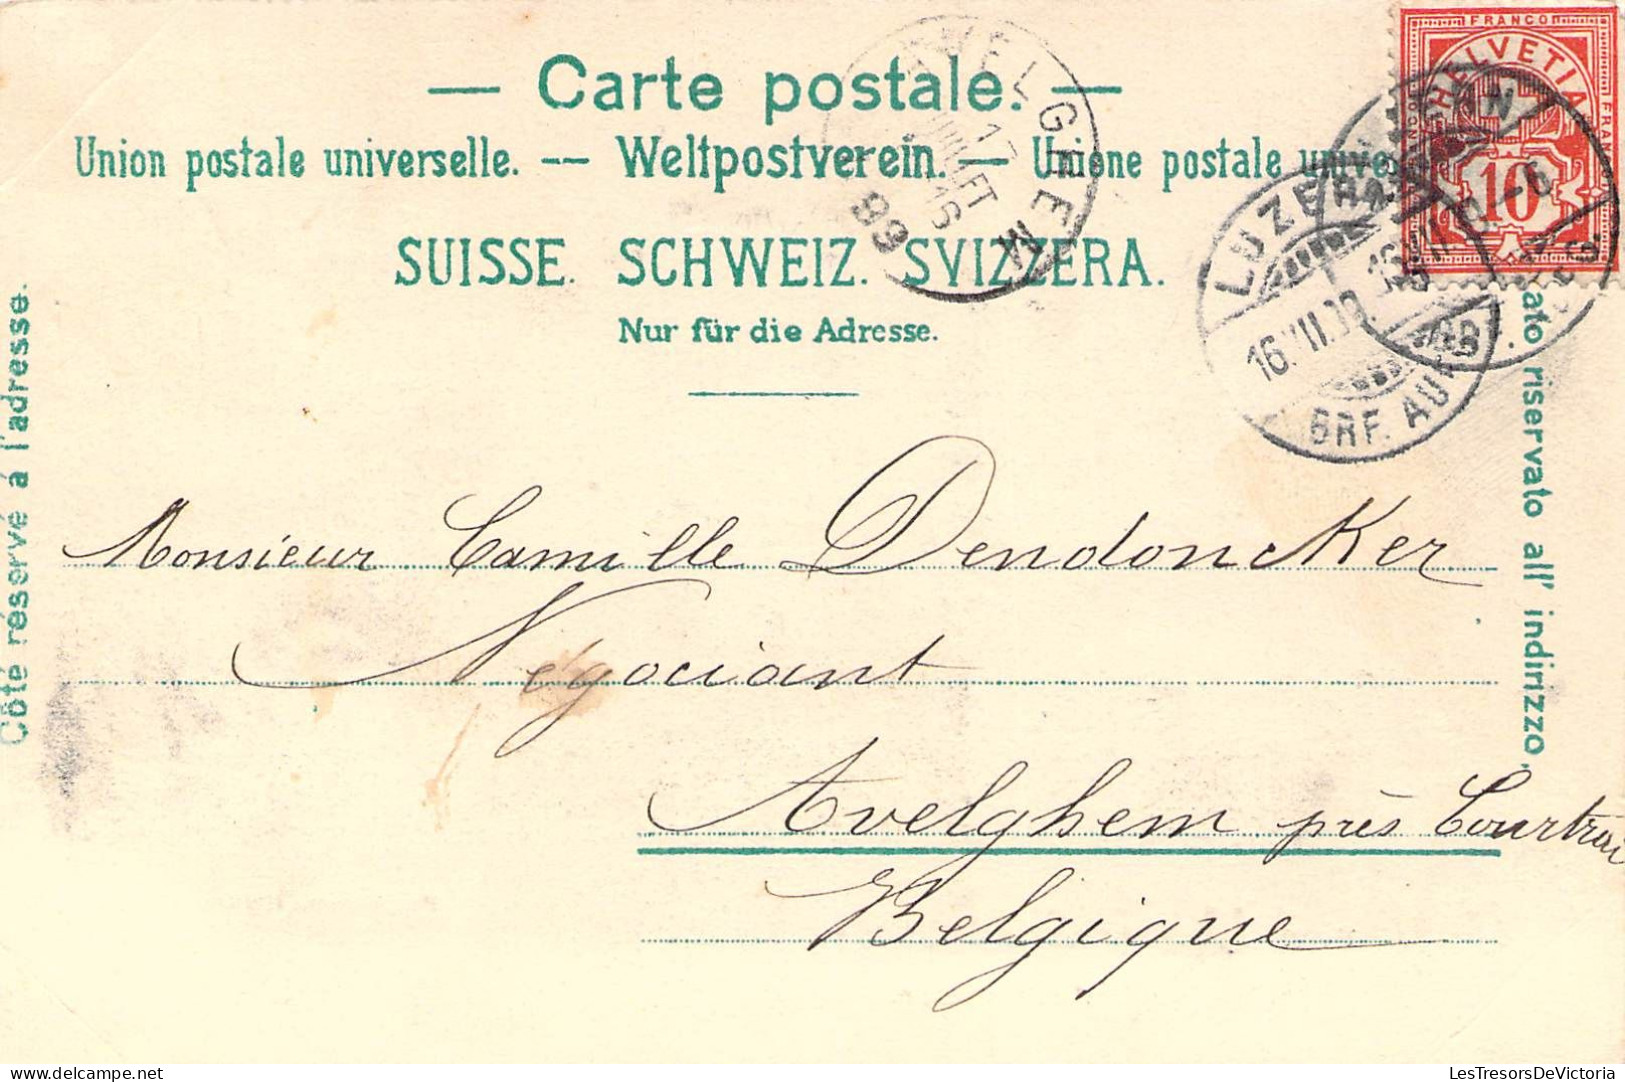 — Carte postale. —
Union postale universelle. -- Weltpostverein. — Unione postale unive
SUISSE. SCHWEIZ. SVIZZERA.
Nur für die Adresse.
Côté réservé à l'adresse.
ato riservato all' indirizzo.
FRANCO
HELVETIA
10
FRAN
AVELGHEM
17
JUILET
16
99
LUZERN
16.VII.99.
BRF. AUFG
Monsieur Camille Dendoncker
Négociant
Avelghem près Courtrai
Belgique
delcampe.net
LesTresorsDeVictoria